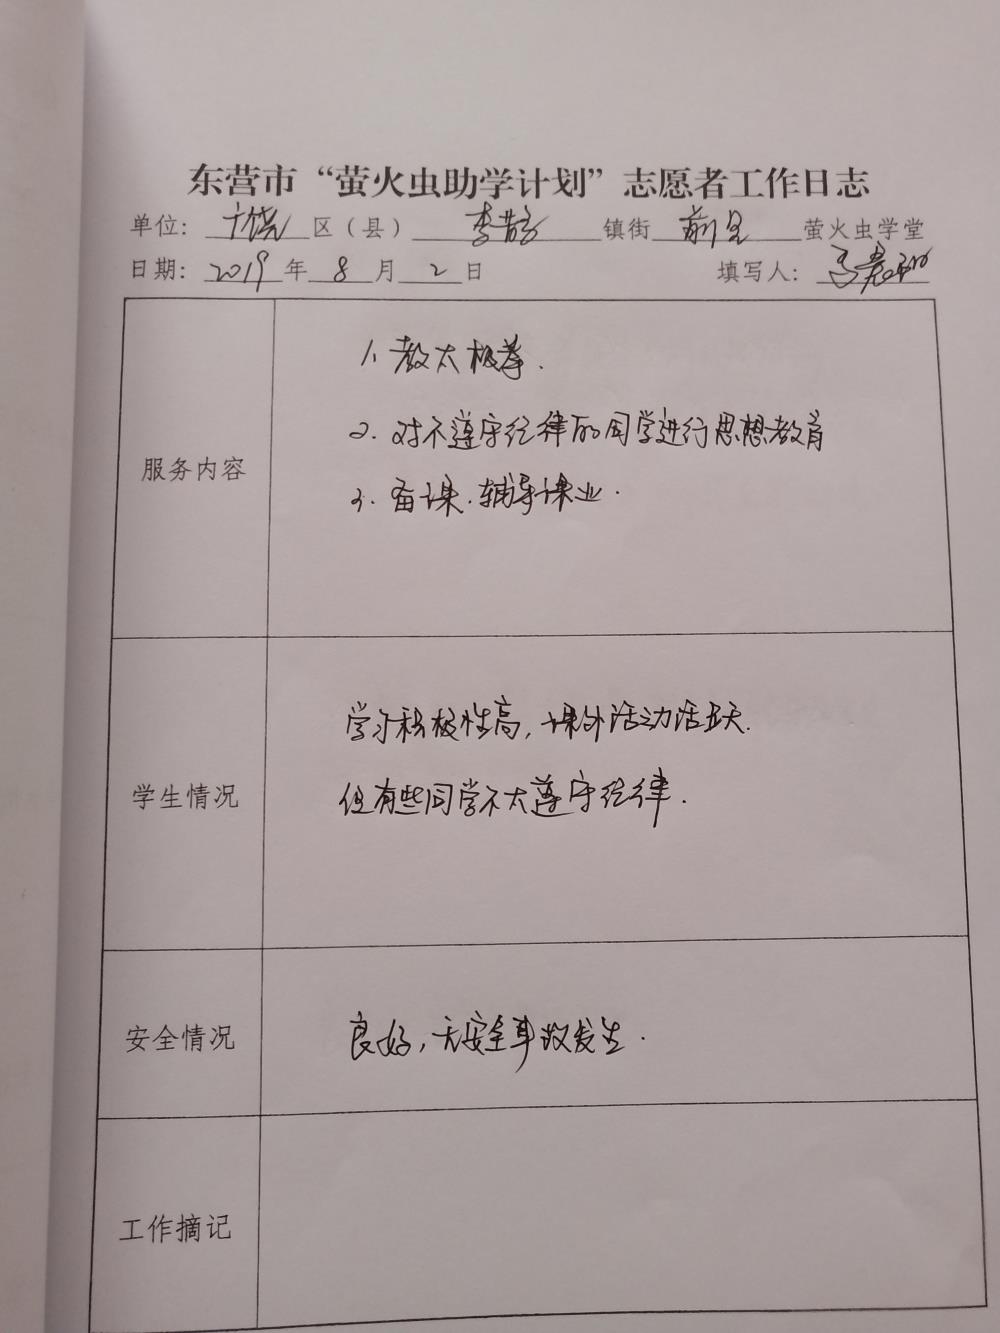 东营市“萤火虫助学计划”志愿者工作日志
单位：广饶区（县）李鹊镇街 前 萤火虫学堂
日期：2019年8月2日 填写人：
服务内容
1、教太极拳.
2. 对不遵守纪律的同学进行思想教育
3. 备课.辅导课业.
学生情况
学习积极性高，课外活动活跃.
但有些同学不太遵守纪律.
安全情况
良好，无安全事故发生.
工作摘记